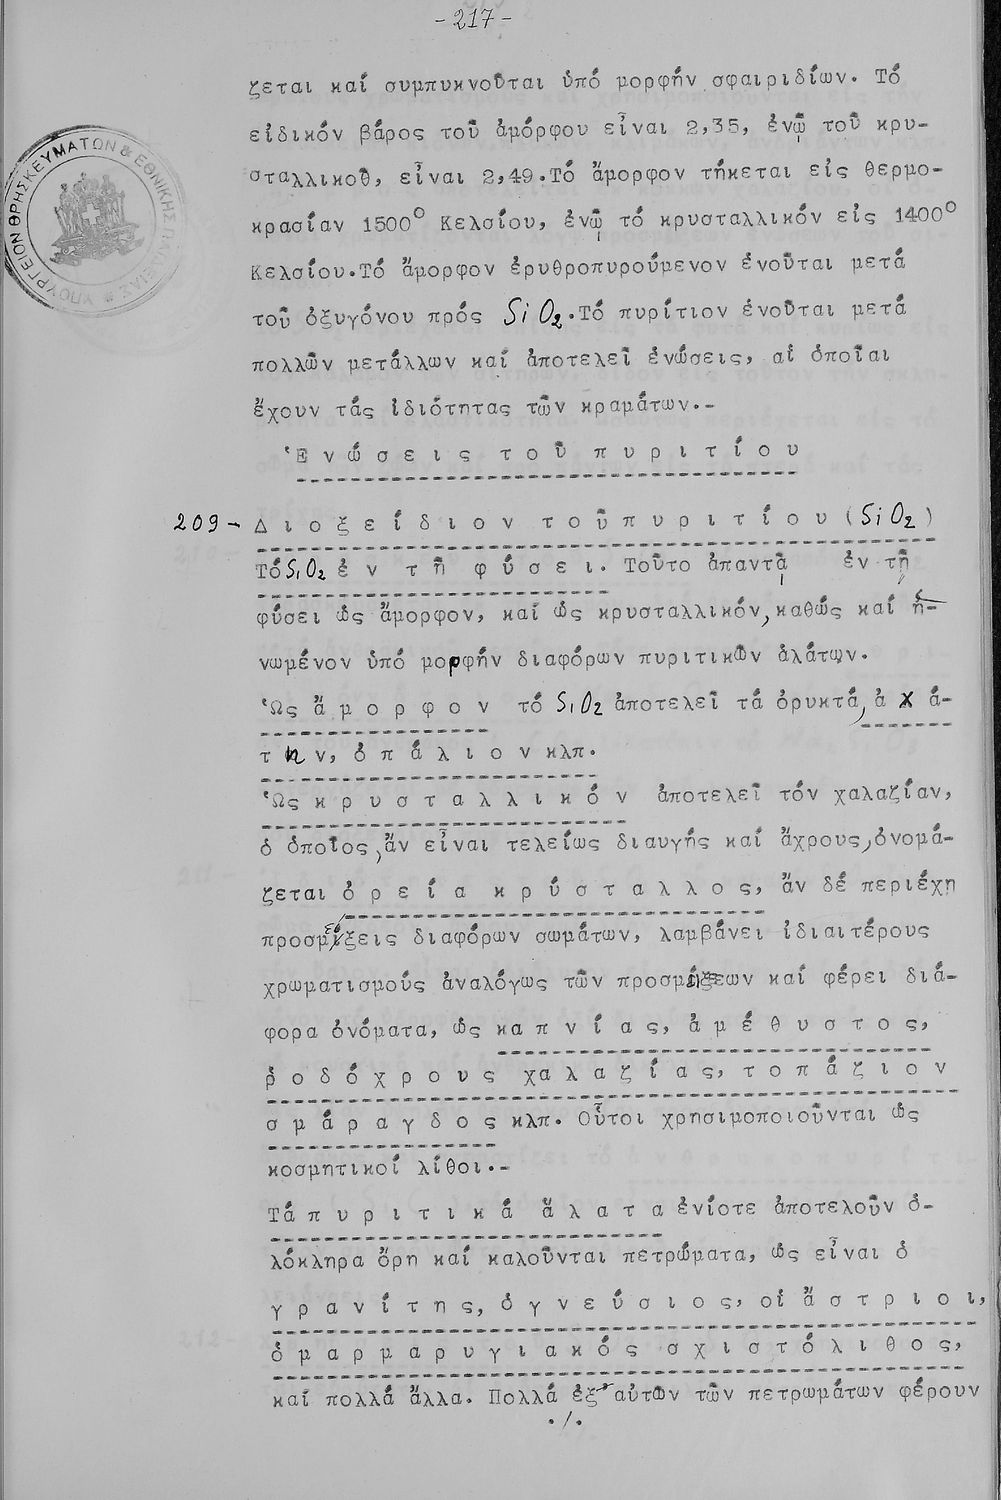 -217-
ζεται καί συμπυκνοῦται ὑπό μορφήν σφαιριδίων. Τό
εἰδικόν βάρος τοῦ ἀμόρφου εἶναι 2,35, ἐνῷ τοῦ κρυ-
σταλλικοῦ, εἶναι 2,49.Τό ἄμορφον τήκεται εἰς θερμο-
κρασίαν 1500° Κελσίου, ἐνῷ τό κρυσταλλικόν εἰς 1400°
Κελσίου.Τό ἄμορφον ἐρυθροπυρούμενον ἐνοῦται μετά
τοῦ ὀξυγόνου πρός SiO2.Τό πυρίτιον ἐνοῦται μετά
πολλῶν μετάλλων καί ἀποτελεῖ ἑνώσεις, αἱ ὁποῖαι
ἔχουν τάς ἰδιότητας τῶν κραμάτων.-
Ἑνώσεις τοῦ πυριτίου
209- Διοξείδιον τοῦ πυριτίου (SiO2)
Τό SiO2 ἐν τῇ φύσει. Τοῦτο ἀπαντᾷ ἐν τῇ
φύσει ὡς ἄμορφον, καί ὡς κρυσταλλικόν, καθώς καί ἡ-
νωμένον ὑπό μορφήν διαφόρων πυριτικῶν ἁλάτων.
Ὡς ἄμορφον τό SiO2 ἀποτελεῖ τά ὀρυκτά, ἀχά-
την, ὀπάλιον κλπ.
Ὡς κρυσταλλικόν ἀποτελεῖ τόν χαλαζίαν,
ὁ ὁποῖος, ἄν εἶναι τελείως διαυγής καί ἄχρους, ὀνομά-
ζεται ὀρεία κρύσταλλος, ἄν δέ περιέχῃ
προσμείξεις διαφόρων σωμάτων, λαμβάνει ἰδιαιτέρους
χρωματισμούς ἀναλόγως τῶν προσμίξεων καί φέρει διά-
φορα ὀνόματα, ὡς καπνίας, ἀμέθυστος,
ῥοδόχρους χαλαζίας, τοπάζιον
σμάραγδος κλπ. Οὗτοι χρησιμοποιοῦνται ὡς
κοσμητικοί λίθοι.-
Τά πυριτικά ἅλατα ἐνίοτε ἀποτελοῦν ὁ-
λόκληρα ὄρη καί καλοῦνται πετρώματα, ὡς εἶναι ὁ
γρανίτης, ὁ γνεύσιος, οἱ ἄστριοι,
ὁ μαρμαρυγιακός σχιστόλιθος,
καί πολλά ἄλλα. Πολλά ἐξ αὐτῶν τῶν πετρωμάτων φέρουν
./.
ΥΠΟΥΡΓΕΙΟΝ ΘΡΗΣΚΕΥΜΑΤΩΝ & ΕΘΝΙΚΗΣ ΠΑΙΔΕΙΑΣ